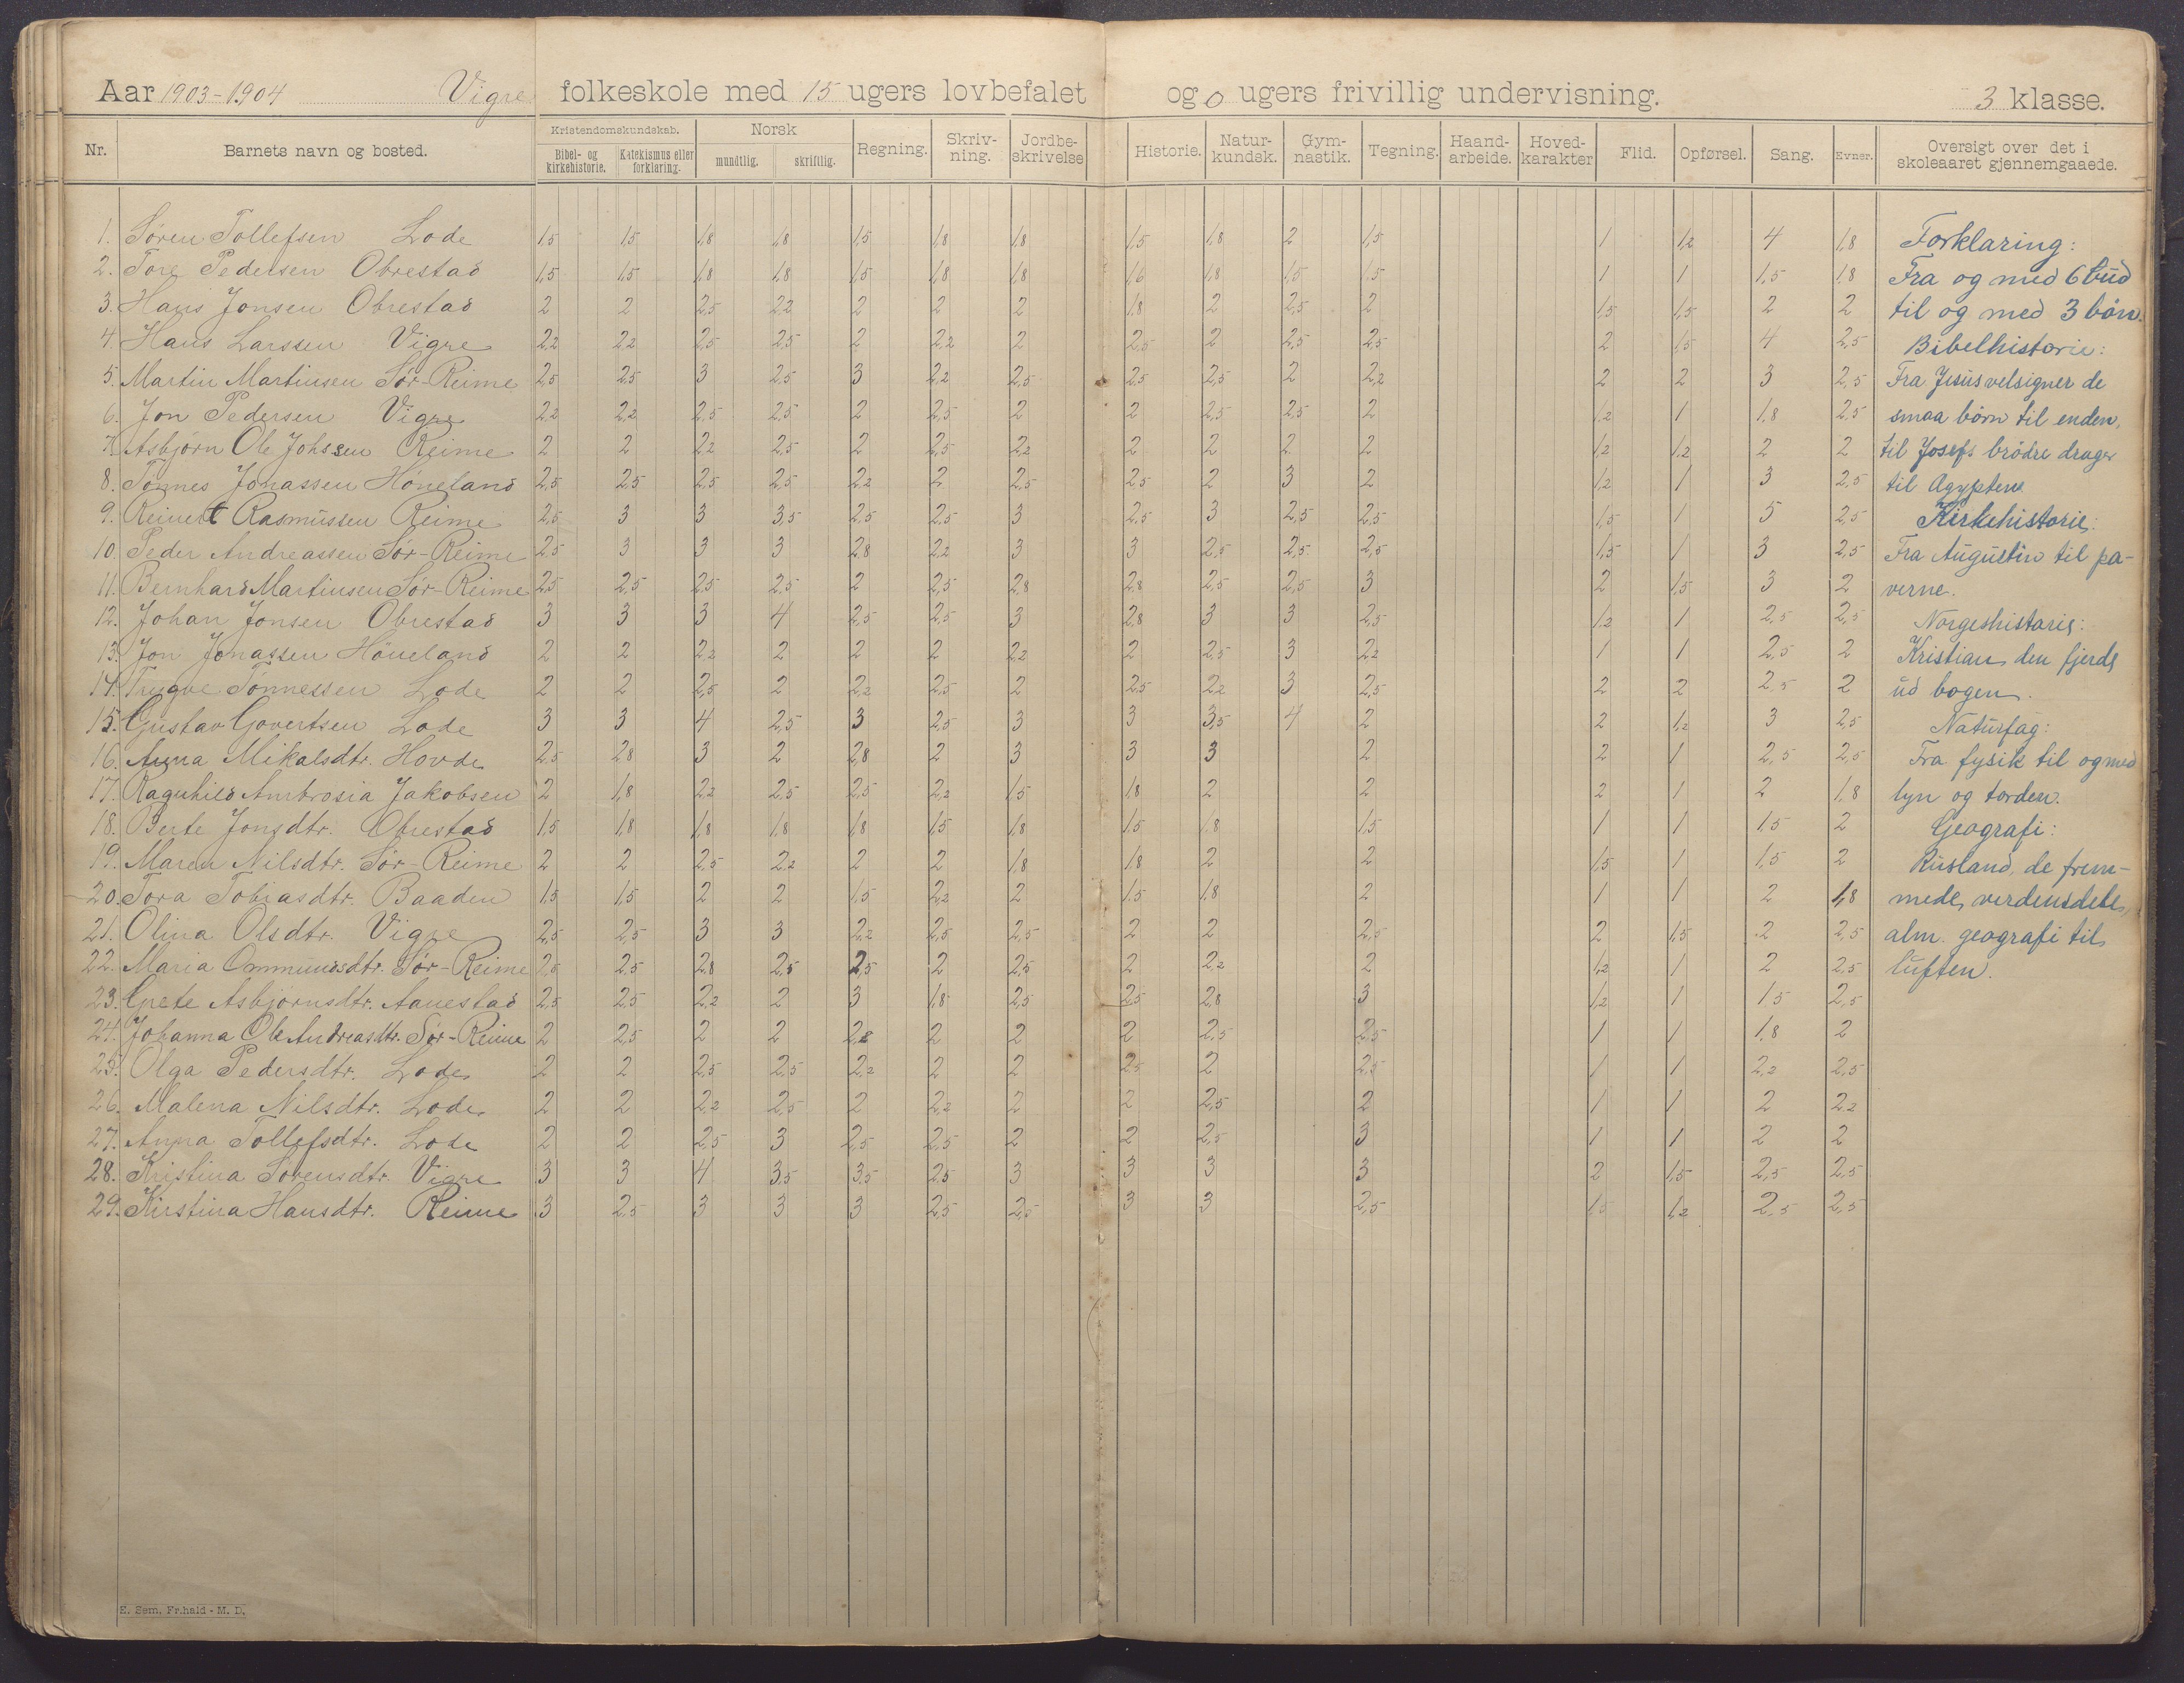 Aar 1903-1904 Vigre folkeskole med 15 ugers lovbefalet og 0 ugers frivillig undervisning. 3 klasse.
Nr. Barnets navn og bosted. Kristendomskundskab. Bibel- og kirkehistorie. Katekismus eller forklaring. Norsk mundtlig. skriftlig. Regning. Skriv-ning. Jordbe-skrivelse Historie. Natur-kundsk. Gym-nastik. Tegning. Haand-arbeide. Hoved-karakter Flid. Opførsel. Sang. Evner. Oversigt over det i skoleaaret gjennemgaaede.
1. Søren Tollefsen Lode 1,5 1,5 1,8 1,8 1,5 1,8 1,8 1,5 1,8 2 1,5 1 1,2 4 1,8 Forklaring:
2. Tore Pedersen Obrestad 1,5 1,5 1,8 1,8 1,5 1,8 1,8 1,6 1,8 1,5 1,5 1 1 1,5 1,8 Fra og med 6 bud
3. Hans Jonsen Obrestad 2 2 2,5 2,2 2 2 2 1,8 2 2,5 2 1,5 1,5 2 2 til og med 3 bøn.
4. Hans Larssen Vigre 2,2 2,2 2,5 2,5 2 2,2 2 2,5 2 2,5 2,5 2 1,5 4 2,5 Bibelhistorie:
5. Martin Martinsen Sør-Reime 2,5 2,5 3 2,5 3 2,2 2,5 2,5 2,5 2 2,2 2 2 3 2,5 Fra Jesus velsigner de
6. Jon Pedersen Vigre 2,2 2,2 2,5 2,5 2 2,5 2 2 2,5 2,5 2 1,2 1 1,8 2,5 smaa børn til enden,
7. Asbjørn Ole Johssen Reime 2 2 2,2 2,5 2 2,5 2,2 2 2 2 2 1,2 1,2 2 2 til Josefs brødre drager
8. Tønnes Jonassen Høneland 2,5 2,5 2,5 2,5 2,2 2 2,5 2,5 2 3 2 1,2 1 3 2,5 til Ægypten
9. Reinert Rasmussen Reime 2,5 3 3 3,5 2,5 2,5 3 2,5 3 2,5 2,5 1,5 1 5 2,5 Kirkehistorie:
10. Peder Andreassen Sør-Reime 2,5 3 3 3 2,8 2,2 3 3 2,5 2,5 2,5 1,5 1 3 2,5 Fra Augustin til pa-
11. Bernhard Martinsen Sør-Reime 2,5 2,5 2,5 2,5 2 2,5 2,8 2,8 2,5 2,5 3 2 1,5 3 2 verne.
12. Johan Jonsen Obrestad 3 3 3 4 2,5 2,5 3 2,8 3 3 2,5 1,2 1 2,5 2,5 Norgeshistorie:
13. Jon Jonassen Høneland 2 2 2,2 2 2 2 2,2 2 2,5 3 2,2 1 1 2,5 2 Kristian den fjerde
14. Trygve Tønnessen Lode 2 2 2,5 2 2,2 2,5 2 2,5 2,2 3 2,5 2 2 2,5 2 ud bogen.
15. Gustav Govertsen Lode 3 3 4 2,5 3 2,5 3 3 3,5 4 2 2 1,2 3 2,5 Naturfag:
16. Anna Mikalsdtr. Hovde 2,5 2,8 3 2 2,8 2 3 3 3 2 2 1 2,5 2,5 Fra fysik til og med
17. Ragnhild Ambrosia Jakobsen 2 1,8 2,2 2,5 2,5 2,2 1,5 1,8 2 2 2 1 2 1,8 lyn og torden.
18. Berte Jonsdtr. Obrestad 1,5 1,8 1,8 1,8 1,8 1,5 1,8 1,5 1,8 1,5 1 1 1,5 2 Geografi:
19. Maren Nilsdtr. Sør-Reime 2 2 2,5 2,2 2 2 1,8 1,8 2 2 1,5 1 1,5 2 Rusland, de frem-
20. Tora Tobiasdtr. Baaden 1,5 1,5 2 2 1,5 2,2 2 1,5 1,8 2 1 1 2 1,8 mede verdensdele,
21. Olina Olsdtr. Vigre 2,5 2,5 3 3 2,2 2,5 2,5 2 2 2,5 2 1,5 2 2,5 alm. geografi til
22. Maria Ommundsdtr. Sør-Reime 2,5 2,5 2,8 2,5 2,5 2 2,5 2 2,2 2 1,2 1 2 2,5 luften.
23. Grete Asbjørnsdtr. Aanestad 2,5 2,5 2,2 2 3 1,8 2,5 2,5 2,8 3 1,2 1 1,5 2,5
24. Johanna Ole Andreasdtr. Sør-Reime 2 2,5 2 2 2,8 2 2 2 2,5 2,5 1 1 1,8 2
25. Olga Pedersdtr. Lode 2 2 2,5 2,5 2,2 2 2 2,5 2 2,5 1 1 2,2 2,5
26. Malena Nilsdtr. Lode 2 2 2,2 2,5 2 2,2 2 2 2,5 2 1 1 2 2,2
27. Anna Tollefsdtr. Lode 2 2 2,5 3 2,5 2,5 2 2 2,5 3 1 1 2 2
28. Kristina Sørensdtr. Vigre 3 3 4 3,5 3,5 2,5 3 3 3 3 2 1,5 2,5 2,5
29. Kirstina Hansdtr. Reime 3 2,5 3 3 3 2,5 2,5 3 3 2,5 1,5 1,2 2,5 2,5
E. Sem. Fr.hald - M. D.